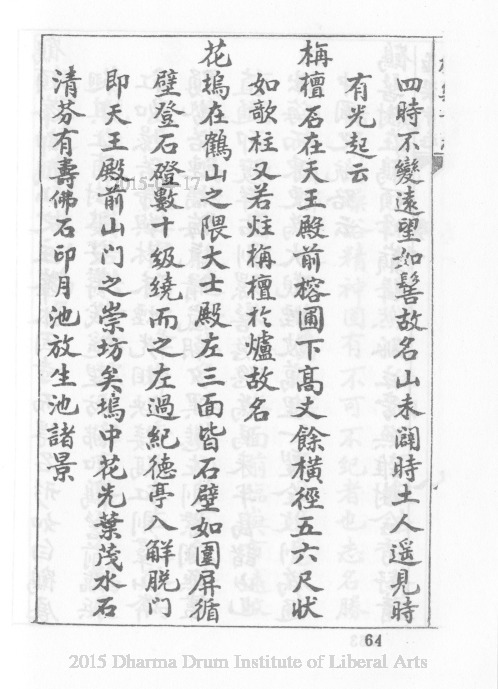 四時不變遠望如髻故名山未闢時土人遥見時
有光起云
栴檀石在天王殿前榕圃下高丈餘橫徑五六尺狀
如欹柱又若炷栴檀於爐故名
花塢在鶴山之隈大士殿左三面皆石壁如圍屏循
壁登石磴數十級繞而之左過紀德亭入解脱門
即天王殿前山門之崇坊矣塢中花先葉茂水石
清芬有壽佛石印月池放生池諸景
64
2015 Dharma Drum Institute of Liberal Arts